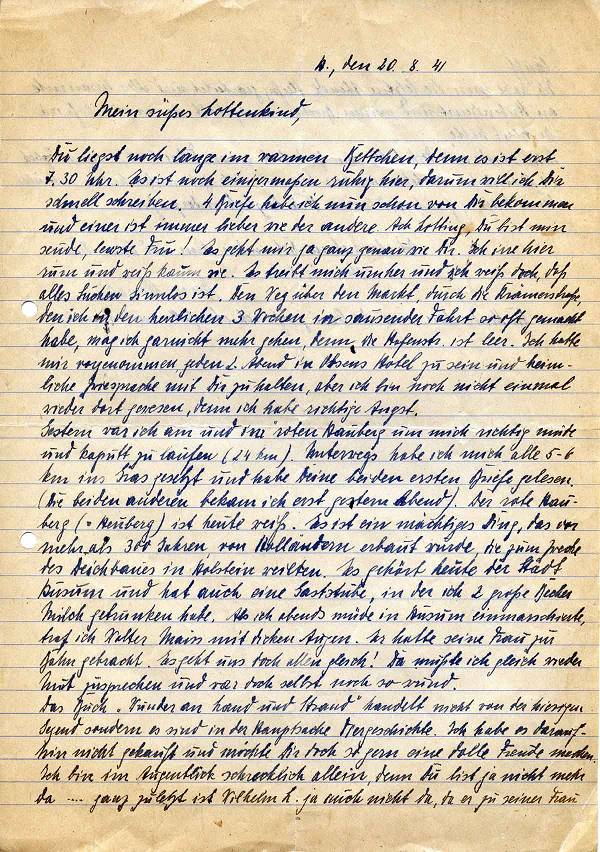 H., den 20. 8. 41
Mein süßes Lottenkind,
Du liegst noch lange im warmen Bettchen, denn es ist erst
7.30 Uhr. Es ist noch einigermaßen ruhig hier, darum will ich Dir
schnell schreiben. 4 Briefe habe ich nun schon von Dir bekommen
und einer ist immer lieber wie der andere. Ach Lotting, Du bist min
seute, leewste Fru! Es geht mir ja ganz genau wie Dir. Ich irre hier
rum und weiß kaum wie. Es treibt mich umher und ich weiß doch, daß
alles Suchen sinnlos ist. Den Weg über den Markt, durch die Krämerstraße,
den ich in den herrlichen 3 Wochen in sausender Fahrt so oft gemacht
habe, mag ich garnicht mehr gehen, denn die Hafenstr. ist leer. Ich hatte
mir vorgenommen jeden 2. Abend in Hotel zu sein und heim-
liche Zwiesprache mit Dir zu halten, aber ich bin noch nicht einmal
wieder dort gewesen, denn ich habe richtige Angst.
Gestern war ich am und im "roten Hauberg" um mich richtig müde
und kaputt zu laufen (24 km). Unterwegs habe ich mich alle 5-6
km ins Gras gesetzt und habe Deine beiden ersten Briefe gelesen.
(Die beiden anderen bekam ich erst gestern Abend). Der rote Hau-
berg (= Heuberg) ist heute weiß. Es ist ein mächtiges Ding, das vor
mehr als 300 Jahren, von Holländern erbaut wurde, die zum Zwecke
des Deichbaues in Holstein weilten. Es gehört heute der Stadt
Husum und hat auch eine Gaststube, in der ich 2 große Becher
Milch getrunken habe. Als ich abends müde in Husum einmarschierte,
traf ich Walter Maiss mit dicken Augen. Er hatte seine Frau zur
Bahn gebracht. Es geht uns doch allen gleich! Da mußte ich gleich wieder
Mut zusprechen und war doch selbst noch so wund.
Das Buch "Wunder an Land und Strand" handelt nicht von der hiesigen
Gegend sondern es sind in der Hauptsache Tiergeschichte. Ich habe es darauf-
hin nicht gekauft und möchte Dir doch so gern eine dolle Freude machen.
Ich bin im Augenblick schrecklich allein, denn Du bist ja nicht mehr
da .... ganz zuletzt ist Wilhelm L. ja auch nicht da, da er zu seiner Frau